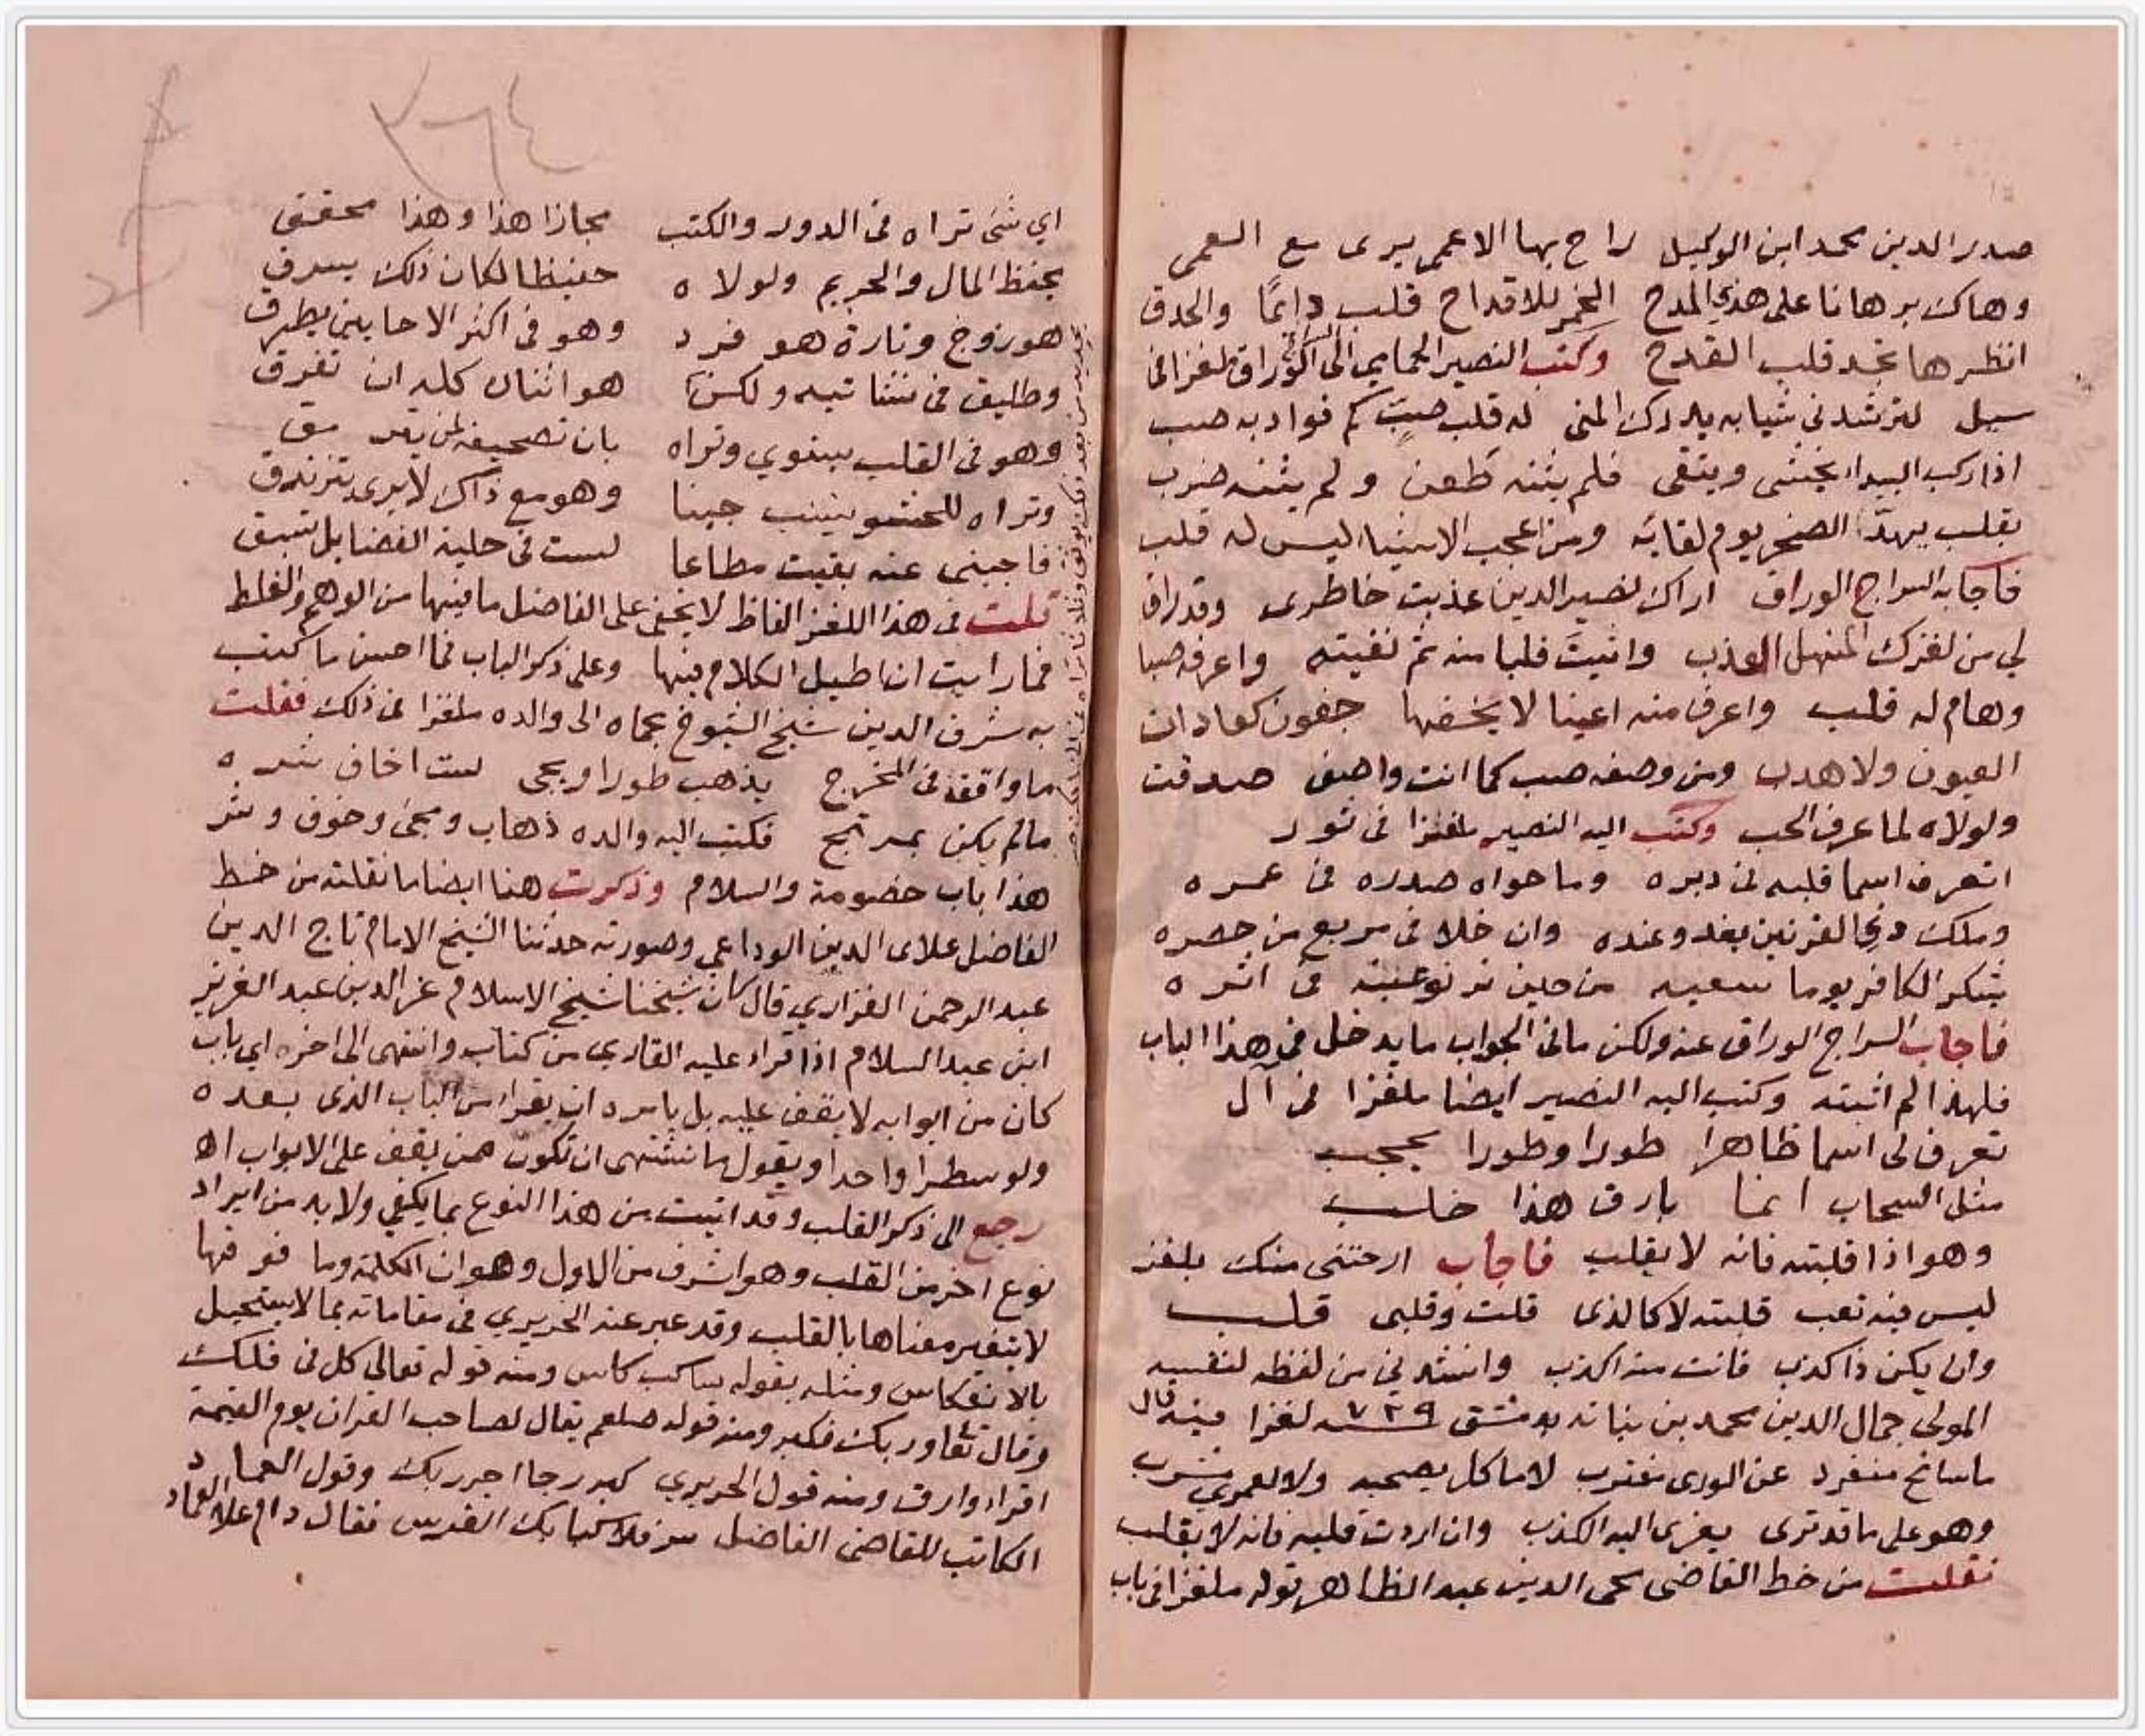 صدر الدين محمد ابن الوكيل راح بها الاعمى يرى مع العمى
وهاك برهانا على هذي المدح الخمر للاقداح قلب دائمًا والحدق
انظرها تجد قلب القدح وكتب النصير الحمامي الى السراج الوراق ملغزا في
سيل لترشدني شيا به يدرك المنى له قلب صبٍّ كم فواد به صب
اذا ركب البيدا يخشى ويتقى فلم يثنه طعن ولم يثنه ضرب
بقلب يهدّ الصخر يوم لقائه ومن اعجب الاشيا ليس له قلب
فاجابه السراج الوراق اراك نصير الدين عذبت خاطرى وقد راق
لي من لغزك المنهل العذب واثبتَ قلبا منه ثم نفيته واعرفه صبا
وهام له قلب واعرف منه اعينا لا يخضها جفون كعادات
العيون ولا هدب ومن وصفه صب كما انت واصف صدقت
ولولاه لما عرف الحب وكتب اليه النصير ملغزا في ثور
اتعرف اسما قلبه في دبره وما حواه صدره في عمره
وملك ذي القرنين يغدو عنده وان خلا في مربع من حصره
يشكر الكافر يوما سعيه من حين ترنو عينه في اثره
فاجاب السراج الوراق عنه ولكن ما في الجواب ما يدخل في هذا الباب
فلهذا لم اثبته وكتب اليه النصير ايضا ملغزا في آل
تعرف لى اسما ظاهرا طورا وطورا يحجب
مثل السحاب انما بارق هذا خلب
وهو اذا قلبته فانه لا يقلب فاجاب ارحتنى منك بلغز
ليس فيه تعب قلبته لا كالذى قلت وقلبى قلب
وان يكن ذا كذب فانت منه اكذب وانشدني من لفظه لنفسه
المولى جمال الدين محمد بن نباته بدمشق سنه ٧٢٩ لغزا فيه قال
ما سانح منفرد عن الورى مغترب لا ماكل يصحبه ولا لعمري مشرب
وهو على ما قد ترى يعزى اليه الكذب وان اردت قلبه فانه لا يقلب
نقلت من خط القاضى محى الدين عبد الظاهر قوله ملغزا في باب
٢٦٤
اي شئ تراه في الدور والكتب مجازا هذا وهذا محقق
يحفظ المال والحريم ولولاه حفيظا لكان ذلك يسرق
هو زوج وتارة هو فرد وهو في اكثر الاحايين يطرق
وطليق في نشاتيه ولكن هو اثنان كله ان تفرق
وهو في القلب يستوي وتراه بان تصحيفه لمن يتر مق
وتراه للحشو ينسب حينا وهو مع ذاك لا يرى يتزندق
فاجبنى عنه بقيت مطاعا لست في حلبة الفضايل تسبق
قلت في هذا اللغز الفاظ لا يخفى على الفاضل ما فيها من الوهم والغلط
فما رايت ان اطيل الكلام فيها وعلى ذكر الباب فما احسن ما كتب
به شرف الدين شيخ الشيوخ بحماه الى والده ملغزا في ذلك فقلت
ما واقف في المخرج يذهب طورا ويجى لست اخاف شره
ما لم يكن بمرتج فكتب اليه والده ذهاب ومجئ وخوف وشر
هذا باب خصومة والسلام وذكرت هنا ايضا ما نقلته من خط
الفاضل علاى الدين الوداعي وصورته حدثنا الشيخ الامام تاج الدين
عبد الرحمن الفزاري قال كان شيخنا شيخ الاسلام عز الدين عبد العزيز
ابن عبد السلام اذا قراء عليه القاري من كتاب وانتهى الى اخره اي باب
كان من ابوابه لا يقف عليه بل يامره ان يقرا من الباب الذى بعده
ولو سطرا واحدا ويقول ما نشتهى ان نكون ممن يقف على الابواب اه
رجع الى ذكر القلب وقد اتيت من هذا النوع بما يكفي ولا بد من ايراد
نوع اخر من القلب وهو اشرف من الاول وهو ان الكلمة وما فوقها
لا يتغير معناها بالقلب وقد عبر عنه الحريري في مقاماته بما لا يستحيل
بالانعكاس ومثله بقوله ساكب كاس ومنه قوله تعالى كل في فلك
وقال تعا وربك فكبر ومنه قوله صلعم يقال لصاحب القران يوم القيمة
اقراء وارق ومنه قول الحريري كبر رجا اجر ربك وقول العماد
الكاتب للقاضى الفاضل سر فلا كبا بك الفرس فقال دام علا العماد